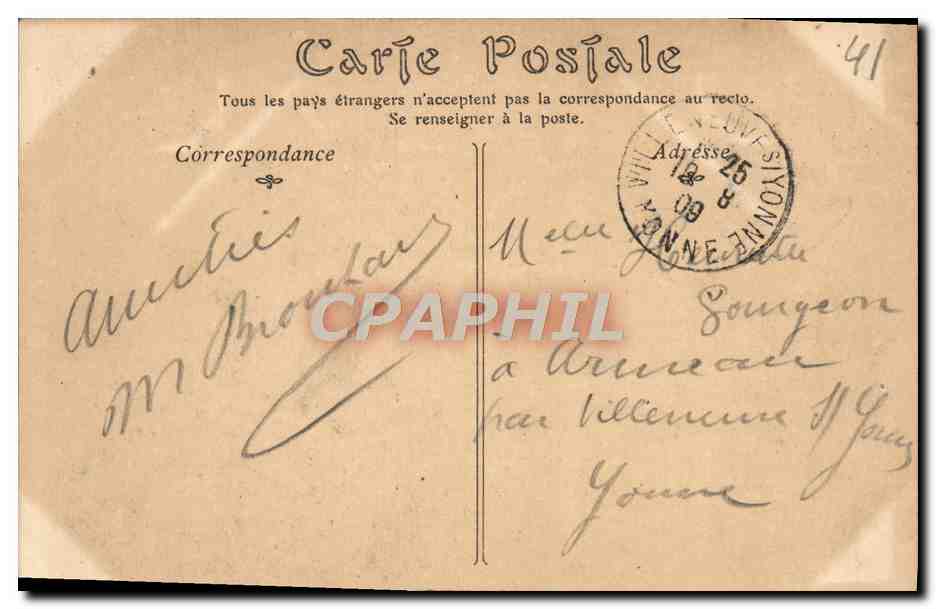 Carte Postale
41
Tous les pays étrangers n'acceptent pas la correspondance au recto.
Se renseigner à la poste.
Correspondance
Adresse
VILLENEUVE S/YONNE
12 25
8
09
YONNE
Amitiés
M
Melle
Gourgeon
à Armeau
par Villeneuve s/ Yonne
Yonne
CPAPHIL